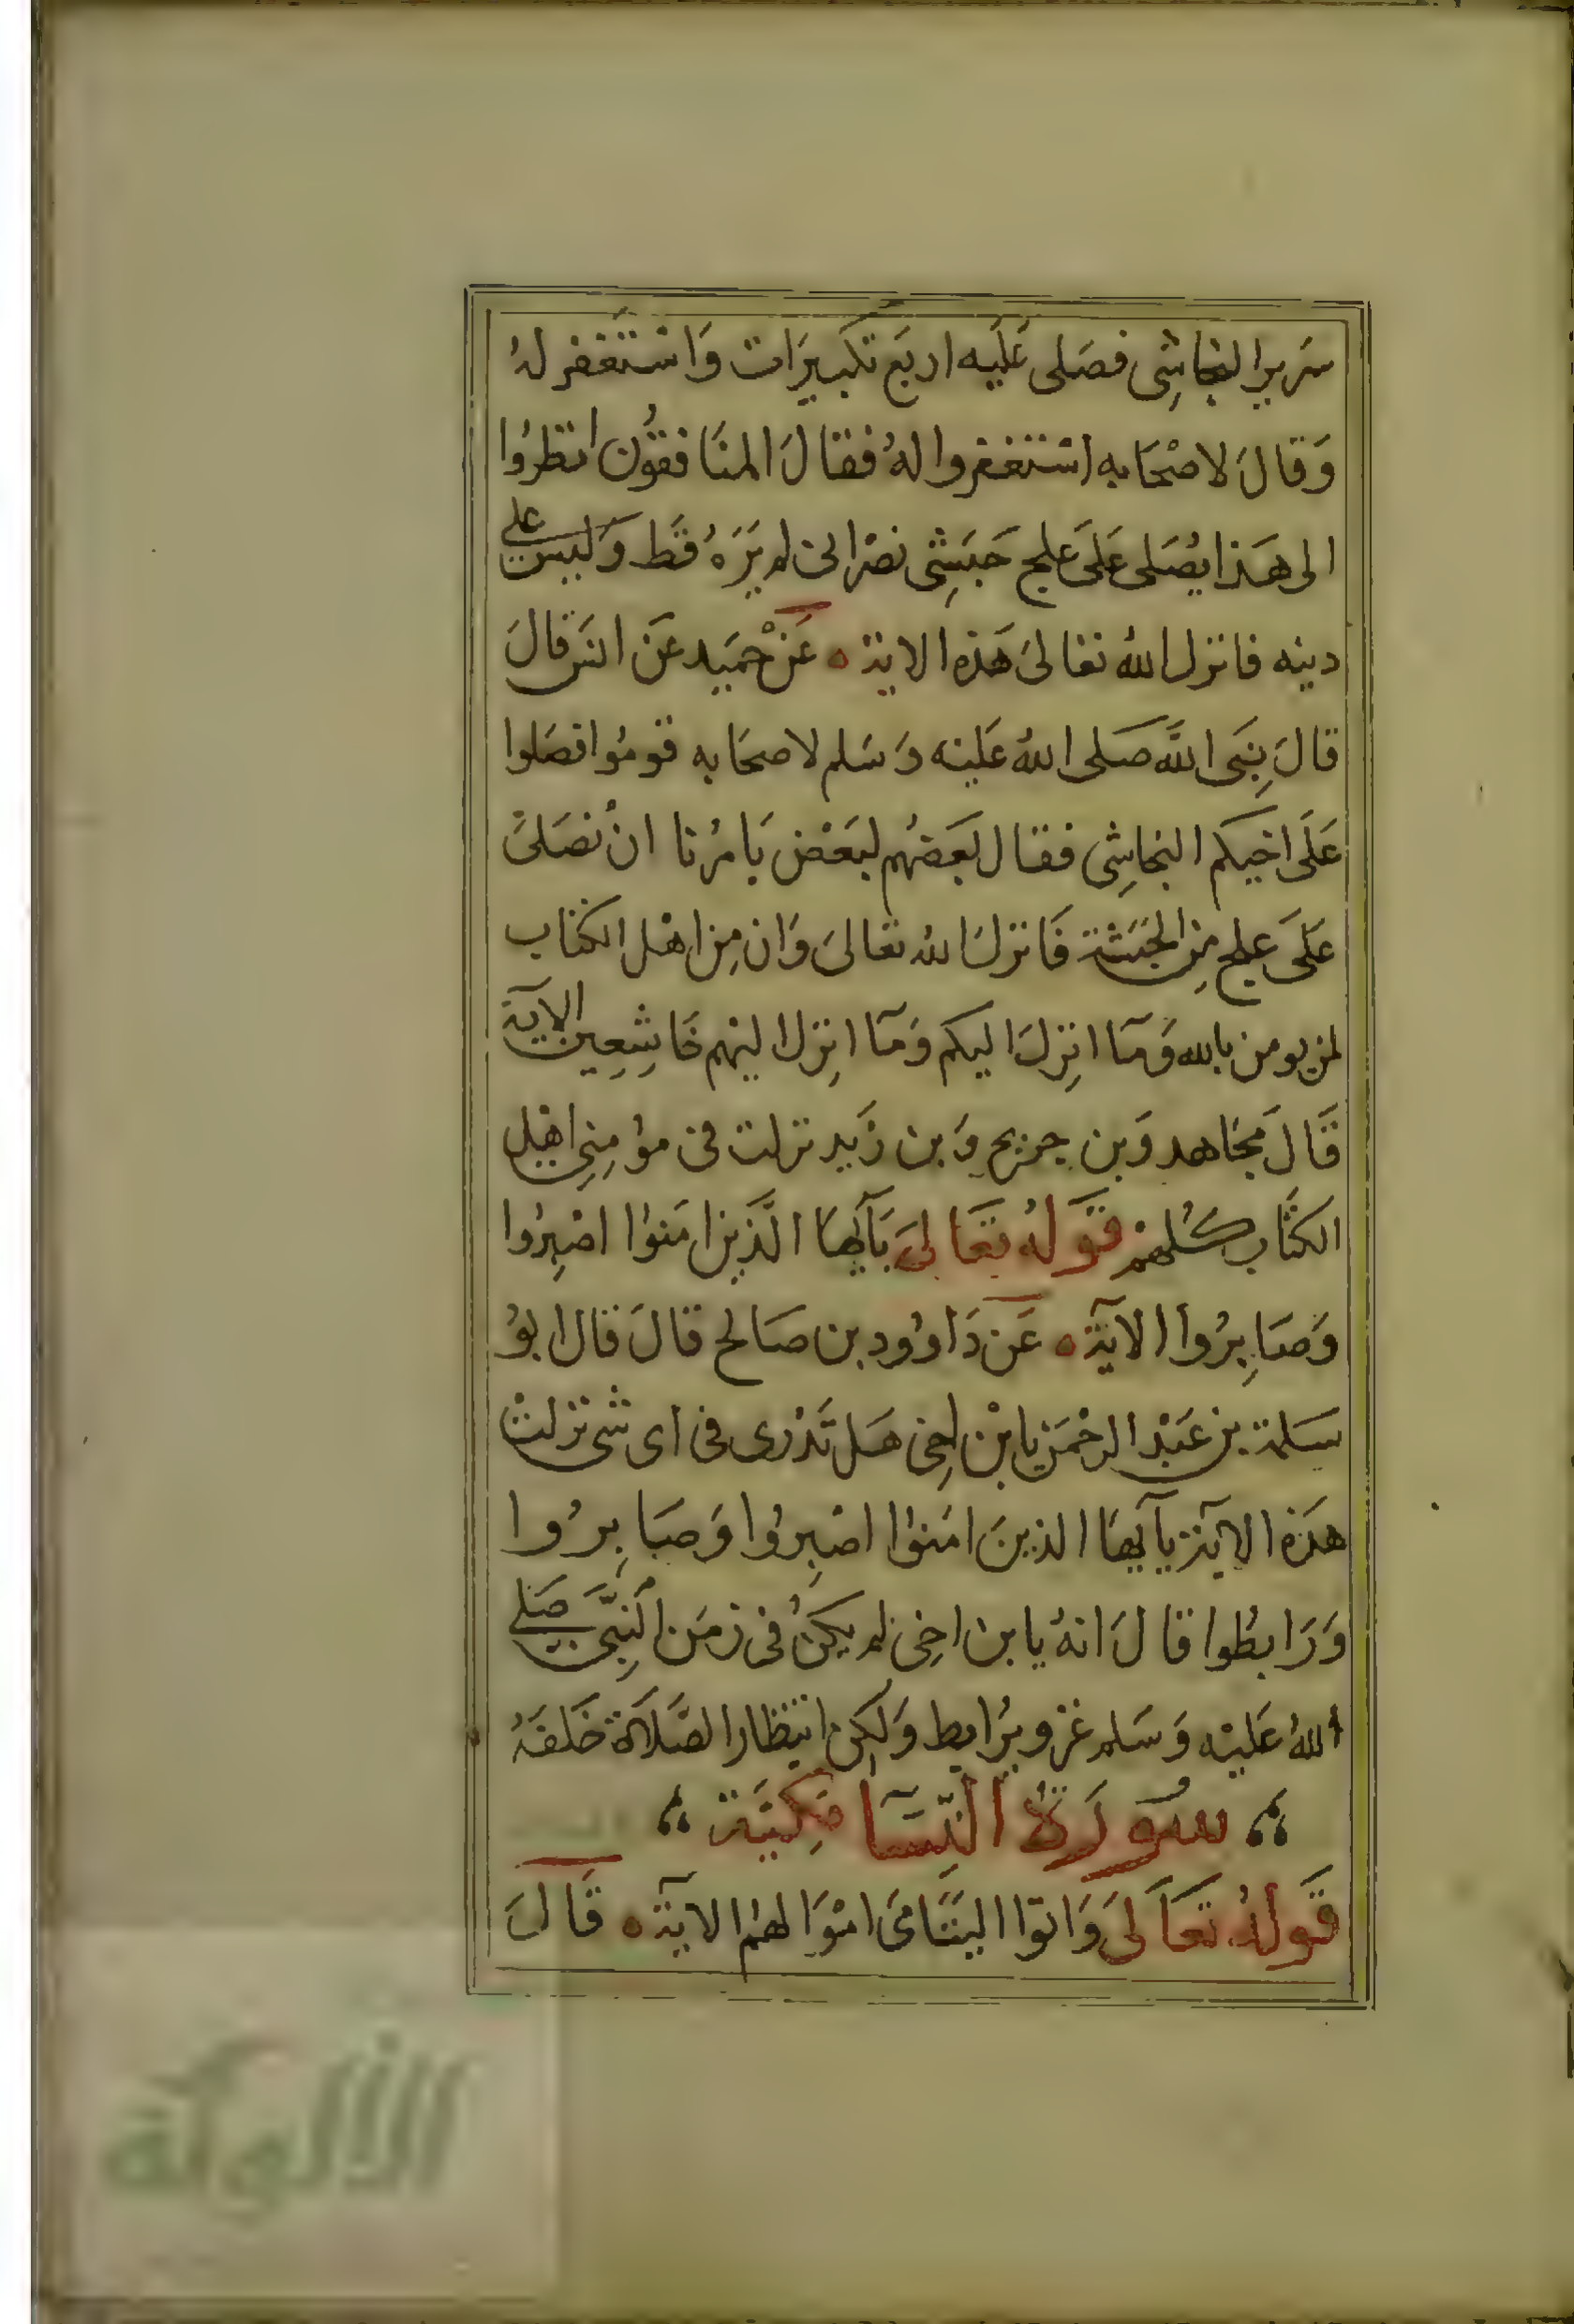 سَرير النجاشِى فصَلى عَلَيه اربَع تكبيرَات وَاستَغفر لهُ
وَقالَ لاصْحَابه استغفروا لهُ فقالَ المنَافقوُن انظرُوا
الى هَذا يصُلى عَلَى علج حَبَشِى نصْرانى لم يَرَهُ قَط وَليس على
دينه فانزل اللهُ تعالىَ هَذه الاية ه عَنْ حمَيد عَن انس قالَ
قالَ نِبَى اللَّه صَلى اللهُ عَليْه وَسَلم لاصحَابه قومُوا فصَلوا
عَلَى اخيكم النجاشِى فقال بَعضهُم لبَعْض يَامرُنا انْ نُصَلىَ
عَلَى علج مِن الحبَشة فَانزلَ الله تعَالىَ وَان مِن اهْل الكتاب
لمن يومن بالله وَمَآ انزِلَ اليكم وَمَآ انزِل اليْهم خَاشِعِين الآية
قَالَ مجَاهد وَبن جريج وَبن زَيد نزلت فى مؤمِنِى اهْل
الكتَاب كُلهمْ قَولهُ تعَالىَ يَآأيهَا الَّذين امَنوُا اصْبِرُوا
وَصَابِرُوا الآية ه عَن دَاوُود بن صَالح قالَ قال ابوُ
سَلمة بن عَبْد الرحْمَن يا بْن اخِى هَل تَدْرى فى اى شى نزلتْ
هَذه الآية يآأيهَا الذينَ امَنوُا اصْبِرُوا وَصَابِرُوا
وَرَابطُوا قالَ انهُ يا بن اخِى لم يكنُ فى زمَن النِبَّى صَلى
اللهُ عَليْه وَسَلم غزو يرُابط وَلكِن انتِظار الصَّلاَة خَلفَهُ
سُورَةُ النِّسَآ مَكِيَة
قَولهُ تعَالىَ وَاتوا اليتَامَى امْوَالهمْ الآية ه قَالَ
الألوكة